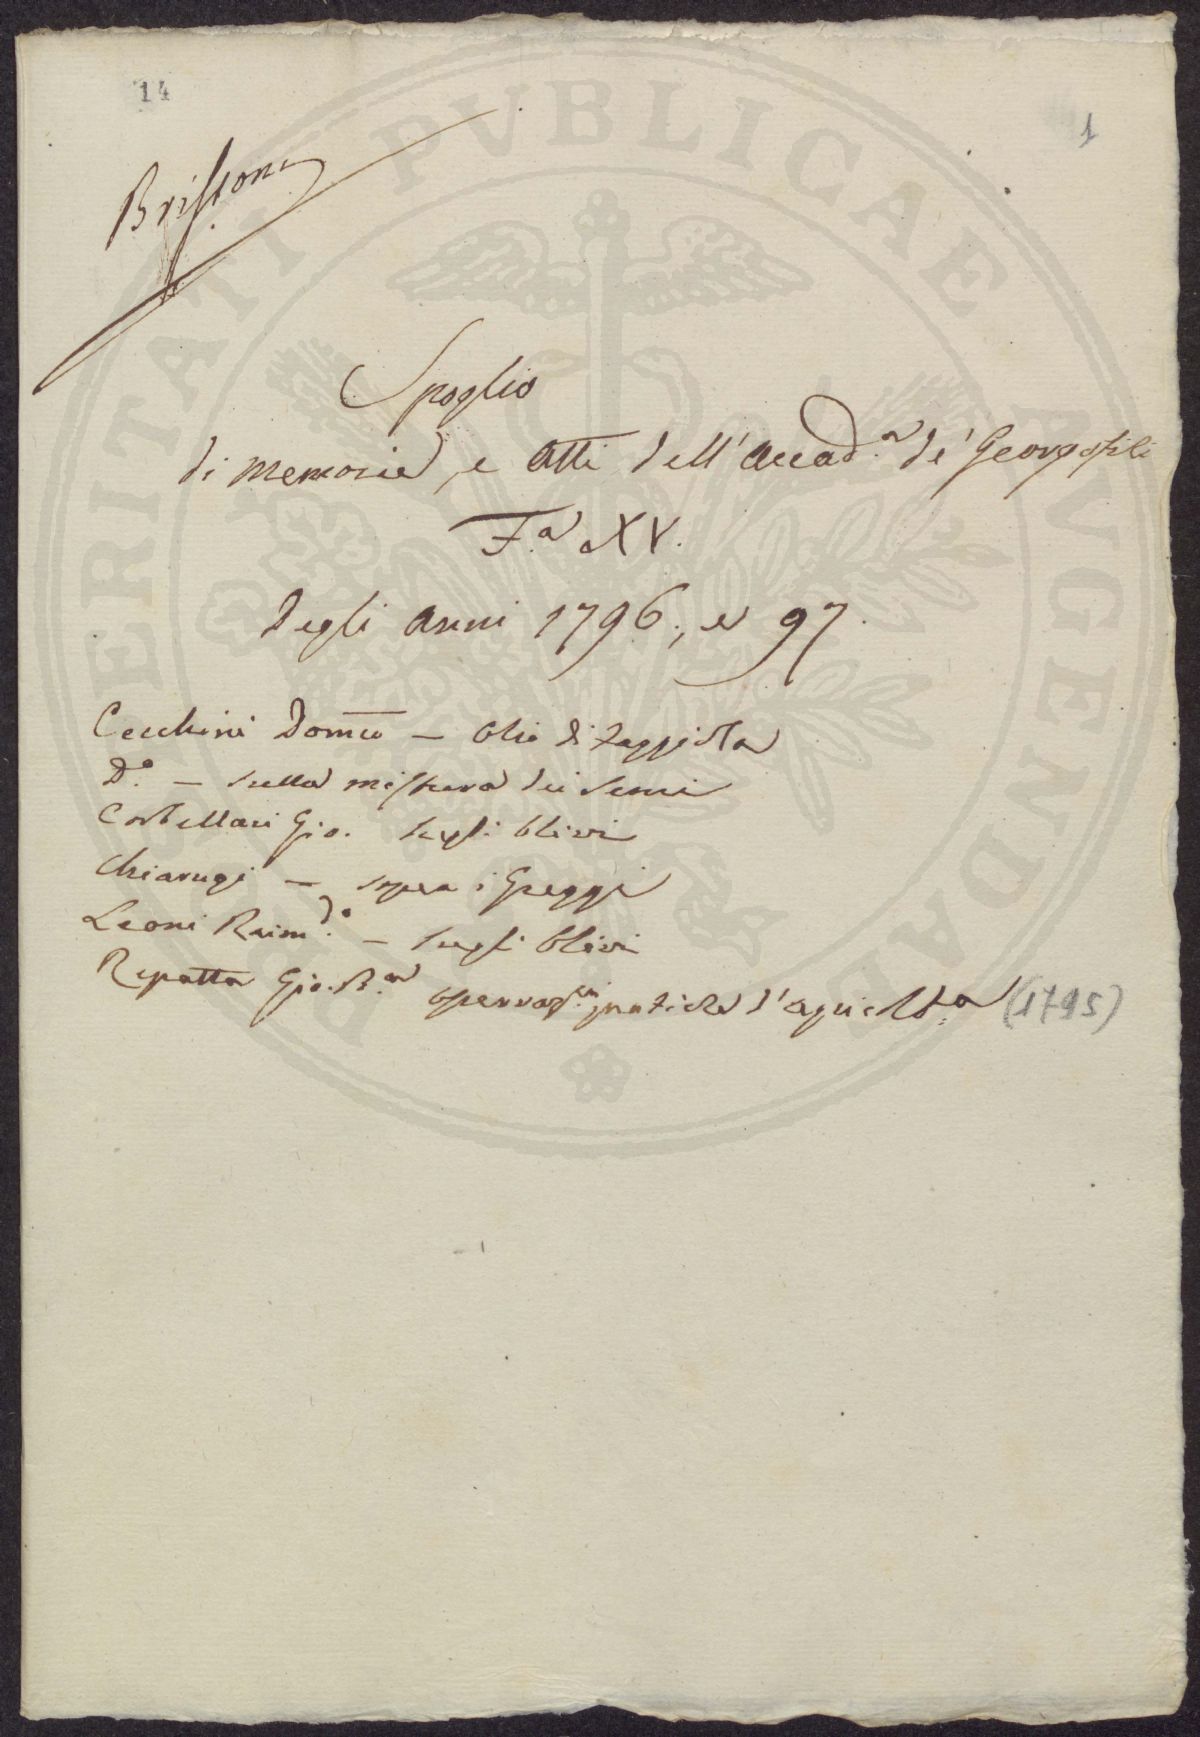 14
1
Spoglio
di memorie, e atti dell'Accad.a de' Georgofili
F.a XV.
degli anni 1796, e 97.
Cecchini Dom.co — Olio di Faggiola
D.o — sulla mistura dei semi
Gio. sugli Olivi
Chiarugi — sopra i Greggi
Leoni Raim.do — sugli Olivi
Gio. B.a pratiche d'agricolt.a (1795)
PROSPERITATI PVBLICAE AVGENDAE